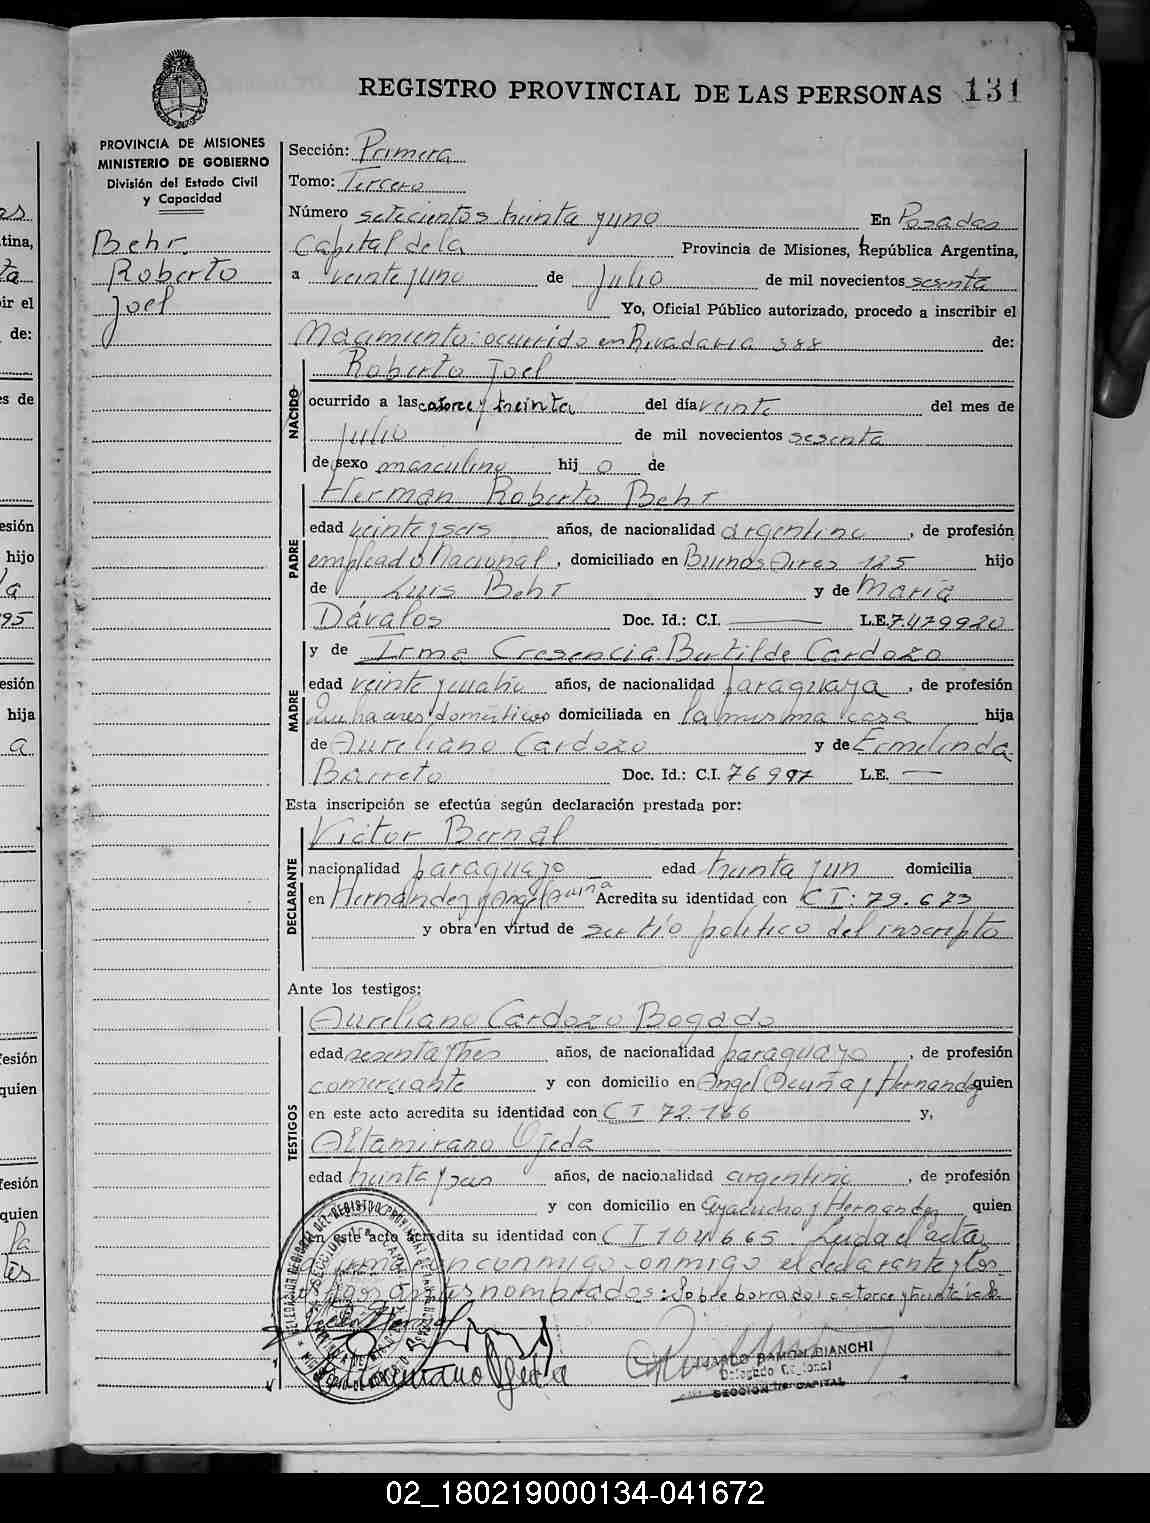 REGISTRO PROVINCIAL DE LAS PERSONAS 131
PROVINCIA DE MISIONES
MINISTERIO DE GOBIERNO
División del Estado Civil
y Capacidad
Behr
Roberto
Joel
Sección: Primera
Tomo: Tercero
Número setecientos treinta y uno En Posadas
Capital de la Provincia de Misiones, República Argentina,
a veinte y uno de Julio de mil novecientos sesenta
Yo, Oficial Público autorizado, procedo a inscribir el
Nacimiento: ocurrido en Rivadavia 388 de:
NACIDO
Roberto Joel
ocurrido a las catorce y treinta del día veinte del mes de
Julio de mil novecientos sesenta
de sexo masculino hijo de
PADRE
Herman Roberto Behr
edad veinte y seis años, de nacionalidad argentino, de profesión
empleado Nacional, domiciliado en Buenos Aires 125 hijo
de Luis Behr y de María
Dávalos Doc. Id.: C.I. — L.E. 7.479920
MADRE
y de Irma Cresencia Bertilde Cardozo
edad veinte y cuatro años, de nacionalidad paraguaya, de profesión
Quehaceres domésticos domiciliada en la misma casa hija
de Aureliano Cardozo y de Ermelinda
Barreto Doc. Id.: C.I. 76997 L.E. —
Esta inscripción se efectúa según declaración prestada por:
DECLARANTE
Victor Bernal
nacionalidad paraguayo edad treinta y un domicilia
en Hernandez y Angel Acuña Acredita su identidad con C I: 79.673
y obra en virtud de ser tío político del inscripto
Ante los testigos:
TESTIGOS
Aureliano Cardozo Bogado
edad sesenta y tres años, de nacionalidad paraguayo, de profesión
comerciante y con domicilio en Angel Acuña y Hernandez quien
en este acto acredita su identidad con C I 72.166 y,
Altamirano Ojeda
edad treinta y seis años, de nacionalidad argentino, de profesión
y con domicilio en ayacucho y Hernandez quien
en este acto acredita su identidad con C I 104665. Leída el acta
conmigo onmigo el declarante y los
nombrados: Sobre borrado: catorce y treinta vale
Altamirano Ojeda
RAMON BIANCHI
Delegado Regional
SECCION 1ª CAPITAL
02_180219000134-041672